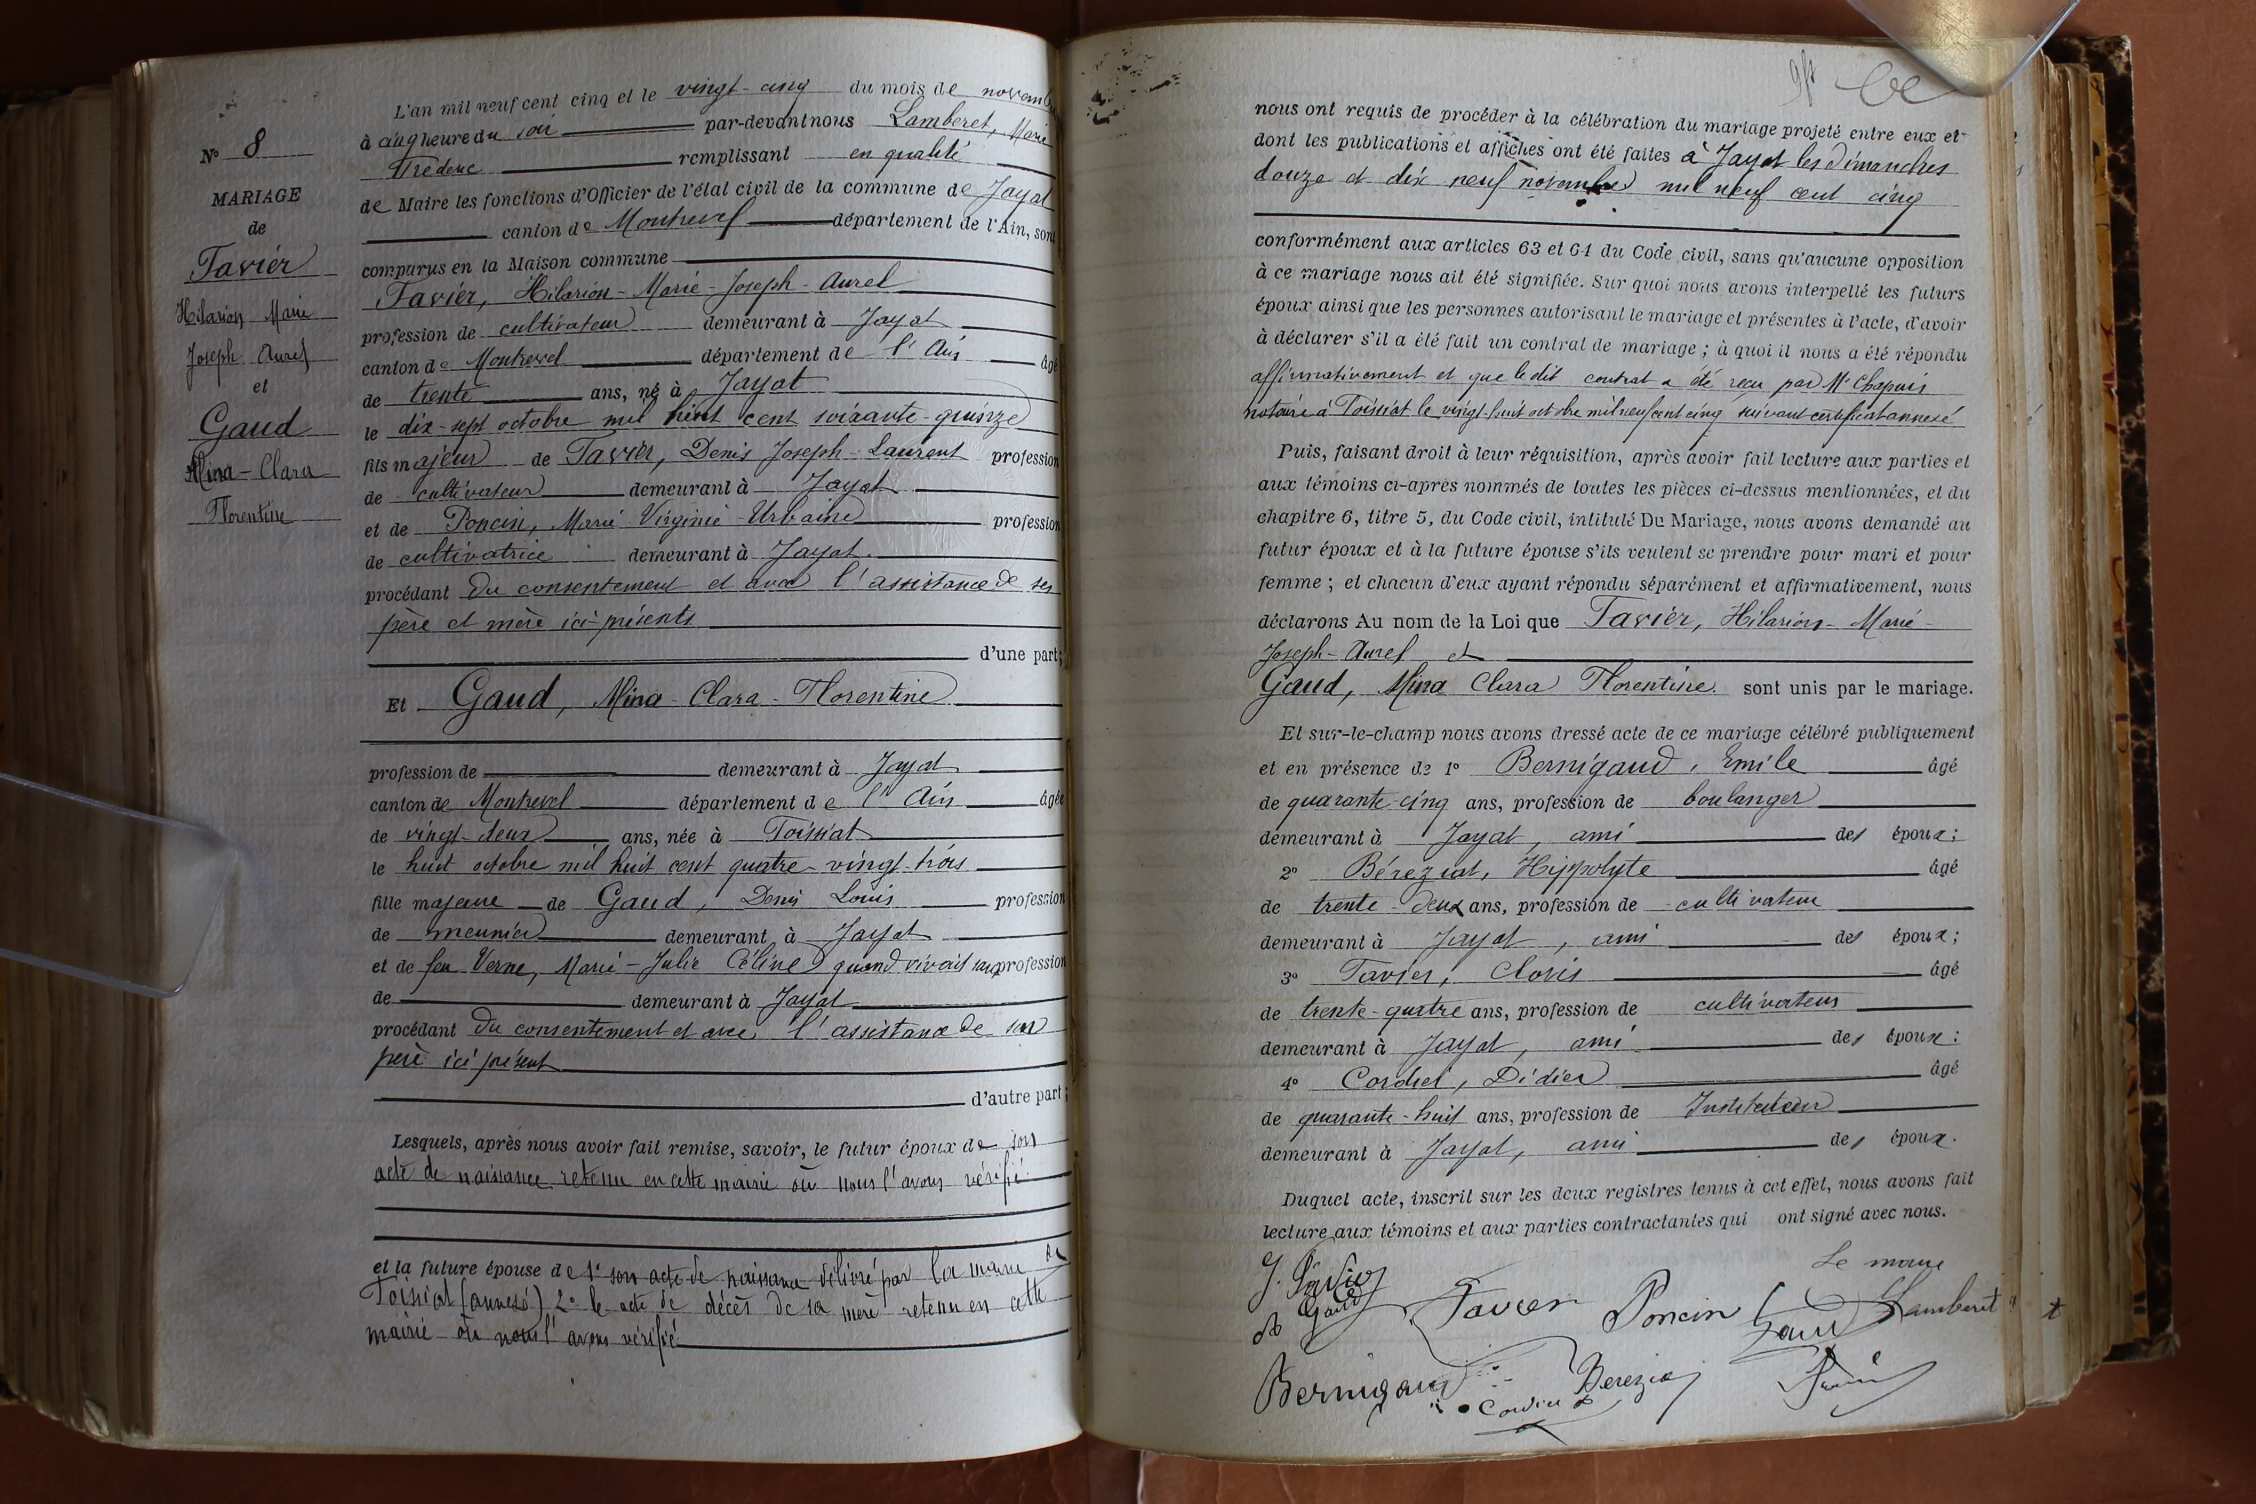 N° 8
MARIAGE
de
Favier
Hilarion Marie
Joseph Aurel
et
Gaud
Mina-Clara
Florentine
L'an mil neuf cent cinq et le vingt-cinq du mois de novembre
à cinq heure du soir par-devant nous Lamberet, Marie
Frédéric remplissant en qualité
de Maire les fonctions d'Officier de l'état civil de la commune de Jayat
canton de Montrevel département de l'Ain, sont
comparus en la Maison commune
Favier, Hilarion-Marie-Joseph-Aurel
profession de cultivateur demeurant à Jayat
canton de Montrevel département de l'Ain âgé
de trente ans, né à Jayat
le dix-sept octobre mil huit cent soixante-quinze
fils majeur de Favier, Denis Joseph-Laurent profession
de cultivateur demeurant à Jayat
et de Poncin, Marie Virginie-Urbaine profession
de cultivatrice demeurant à Jayat.
procédant du consentement et avec l'assistance de ses
père et mère ici-présents
d'une part;
Et Gaud, Mina-Clara-Florentine
profession de demeurant à Jayat
canton de Montrevel département de l'Ain âgée
de vingt-deux ans, née à Foissiat
le huit octobre mil huit cent quatre-vingt-trois
fille majeure de Gaud, Denis Louis profession
de meunier demeurant à Jayat
et de feu Verne, Marie-Julie Céline quand vivait sans profession
de demeurant à Jayat
procédant du consentement et avec l'assistance de son
père ici présent
d'autre part;
Lesquels, après nous avoir fait remise, savoir, le futur époux de son
acte de naissance retenu en cette mairie où nous l'avons vérifié
et la future épouse de 1° son acte de naissance délivré par la mairie de
Foissiat (annexé) 2° le acte de décès de sa mère retenu en cette
mairie où nous l'avons vérifié
nous ont requis de procéder à la célébration du mariage projeté entre eux et
dont les publications et affiches ont été faites à Jayat les dimanches
douze et dix neuf novembre mil neuf cent cinq
conformément aux articles 63 et 64 du Code civil, sans qu'aucune opposition
à ce mariage nous ait été signifiée. Sur quoi nous avons interpellé les futurs
époux ainsi que les personnes autorisant le mariage et présentes à l'acte, d'avoir
à déclarer s'il a été fait un contrat de mariage ; à quoi il nous a été répondu
affirmativement et que le dit contrat a été reçu par Me Chapuis
notaire à Foissiat le vingt-huit octobre mil neuf cent cinq suivant certificat annexé
Puis, faisant droit à leur réquisition, après avoir fait lecture aux parties et
aux témoins ci-après nommés de toutes les pièces ci-dessus mentionnées, et du
chapitre 6, titre 5, du Code civil, intitulé Du Mariage, nous avons demandé au
futur époux et à la future épouse s'ils veulent se prendre pour mari et pour
femme ; et chacun d'eux ayant répondu séparément et affirmativement, nous
déclarons Au nom de la Loi que Favier, Hilarion-Marie-
Joseph-Aurel et
Gaud, Mina Clara Florentine sont unis par le mariage.
Et sur-le-champ nous avons dressé acte de ce mariage célébré publiquement
et en présence de 1° Bernigaud, Emile âgé
de quarante-cinq ans, profession de boulanger
demeurant à Jayat, ami des époux ;
2° Béréziat, Hippolyte âgé
de trente-deux ans, profession de cultivateur
demeurant à Jayat, ami des époux ;
3° Favier, Clovis âgé
de trente-quatre ans, profession de cultivateur
demeurant à Jayat, ami des époux :
4° Cordier, Didier âgé
de quarante-huit ans, profession de Instituteur
demeurant à Jayat, ami des époux.
Duquel acte, inscrit sur les deux registres tenus à cet effet, nous avons fait
lecture aux témoins et aux parties contractantes qui ont signé avec nous.
Le maire
J. Favier
Gaud Favier Poncin Gaud Lamberet
Bernigaud Cordier Bereziat